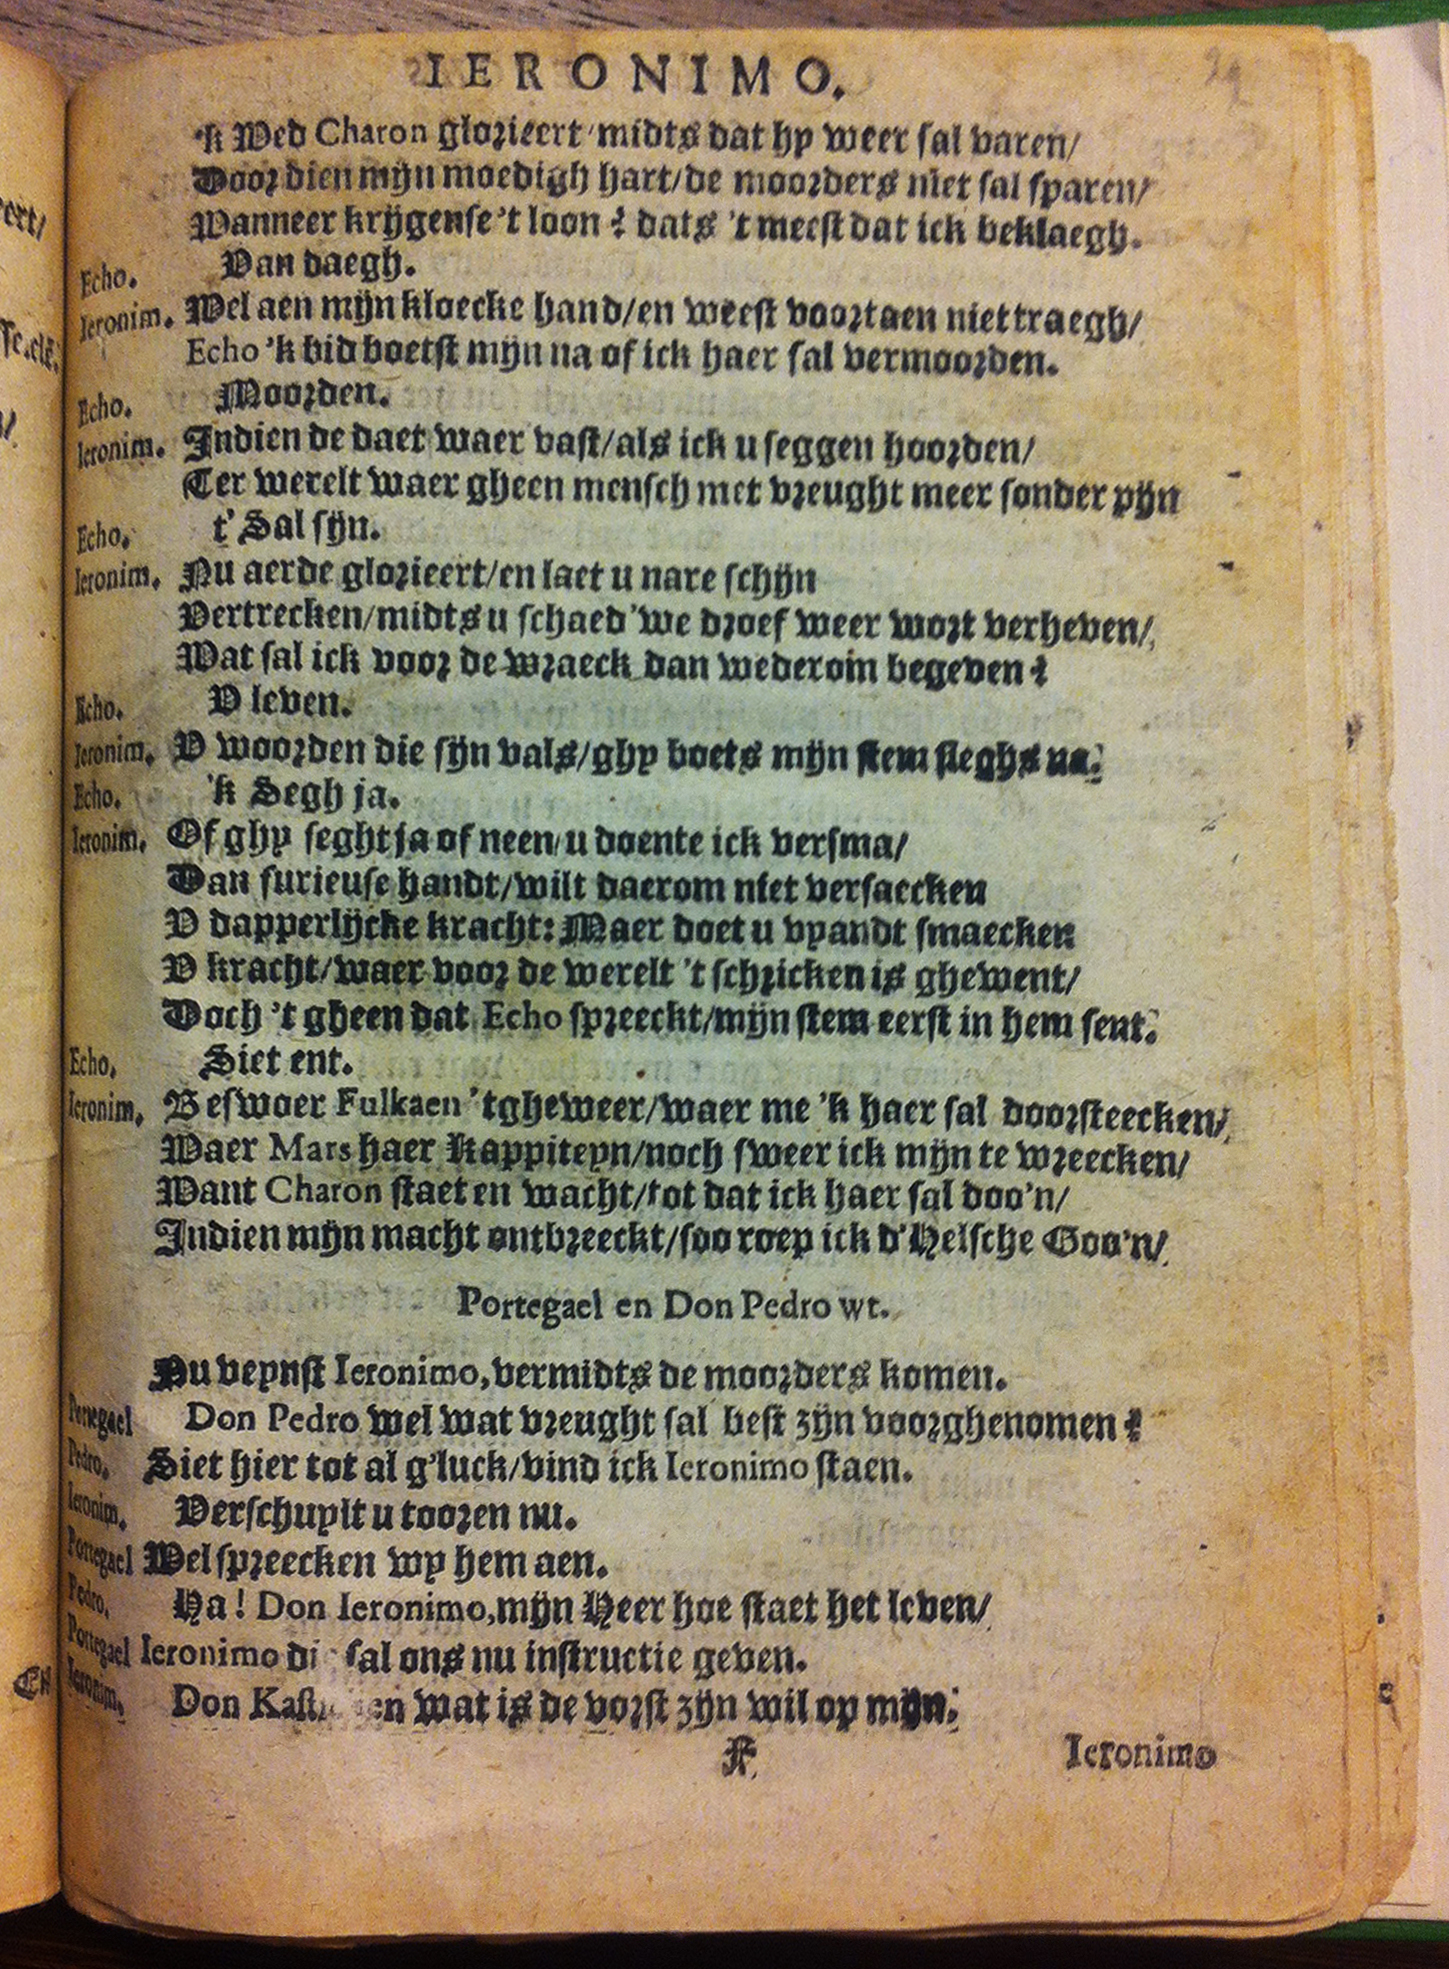 IERONIMO.
'k Wed Charon glorieert/midts dat hy weer sal varen/
Door dien mijn moedigh hart/de moorders niet sal sparen/
Wanneer krijgense 't loon? dats 't meest dat ick beklaegh.
Echo. Van daegh.
Ieronim. Wel aen mijn kloecke hand/en weest voortaen niet traegh/
Echo 'k bid boetst mijn na of ick haer sal vermoorden.
Echo. Moorden.
Ieronim. Indien de daet waer vast/als ick u seggen hoorden/
Ter werelt waer gheen mensch met vreught meer sonder pijn
Echo. t' Sal sijn.
Ieronim. Nu aerde glorieert/en laet u nare schijn
Vertrecken/midts u schaed'we droef weer wort verheven/
Wat sal ick voor de wraeck dan wederom begeven?
Echo. V leven.
Ieronim. V woorden die sijn vals/ghy boets mijn stem steghs na.
Echo. 'k Segh ja.
Ieronim. Of ghy seght ja of neen/u doente ick versma/
Dan furieuse handt/wilt daerom niet versaecken
V dapperlijcke kracht: Maer doet u vyandt smaecken
V kracht/waer voor de werelt 't schricken is ghewent/
Doch 't gheen dat Echo spreeckt/mijn stem eerst in hem sent.
Echo. Siet ent.
Ieronim. Beswoer Fulkaen 'tgheweer/waer me 'k haer sal doorsteecken/
Waer Mars haer Kappiteyn/noch sweer ick mijn te wreecken/
Want Charon staet en wacht/tot dat ick haer sal doo'n/
Indien mijn macht ontbreeckt/soo roep ick d'Helsche Goo'n/
Portegael en Don Pedro wt.
Nu veynst Ieronimo, vermidts de moorders komen.
Portegael Don Pedro wel wat vreught sal best zijn voorghenomen?
Pedro. Siet hier tot al g'luck/vind ick Ieronimo staen.
Ieronim. Verschuylt u tooren nu.
Portegael Wel spreecken wy hem aen.
Pedro. Ha! Don Ieronimo, mijn Heer hoe staet het leven/
Portegael Ieronimo di sal ons nu instructie geven.
Ieronim. Don wat is de vorst zijn wil op mijn.
F
Ieronimo